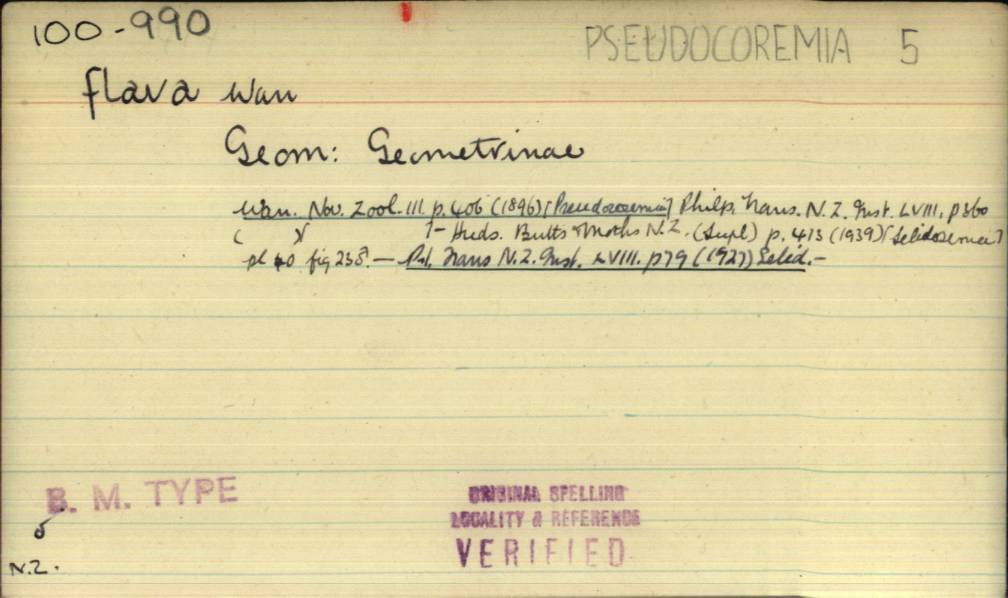 100-990
PSEUDOCOREMIA 5
flava Warr
Geom: Geometrinae
Warr. Nov. Zool. III p. 406 (1896) [Pseudocoremia] Philp. Trans. N.Z. Inst. LVIII, p 360
( )( ]- Huds. Butts & Moths N.Z. (Supl) p. 413 (1939) [Selidosemia]
pl 60 fig 23 — Trans N.Z. Inst. LVIII. p79 (1927) Selid. -
B. M. TYPE
♂
N.Z.
ORIGINAL SPELLING
LOCALITY & REFERENCE
VERIFIED